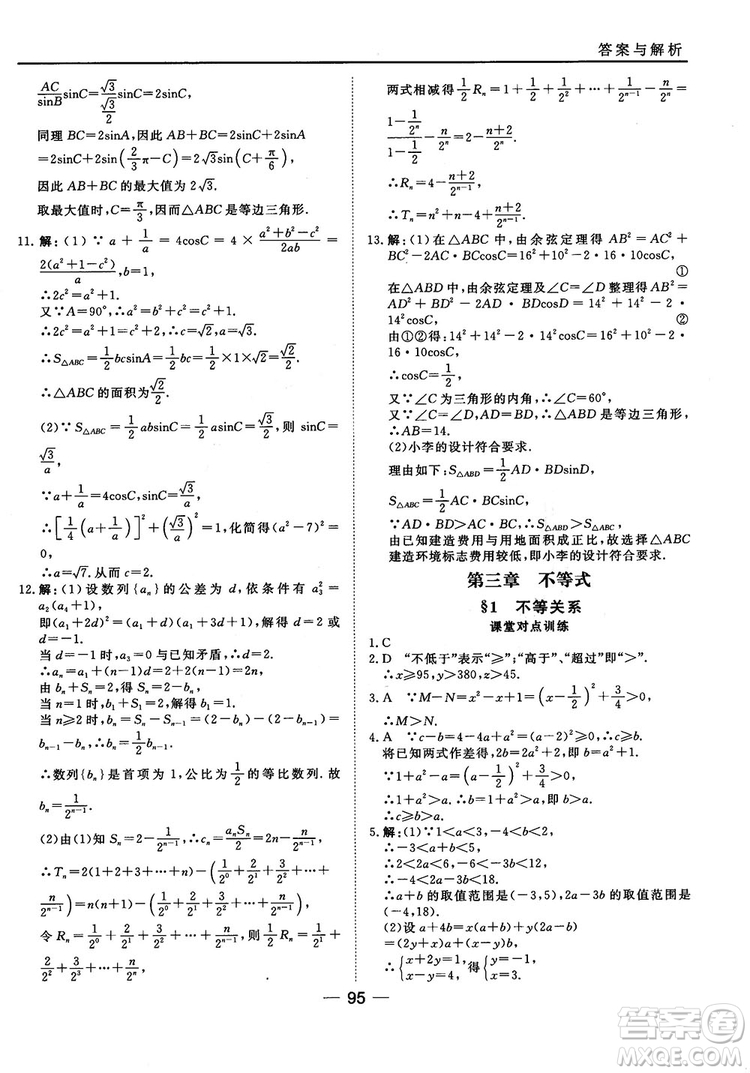 答案与解析
AC/sinB sinC=√3/(√3/2) sinC=2sinC,
同理 BC=2sinA,因此 AB+BC=2sinC+2sinA
=2sinC+2sin(2/3 π-C)=2√3sin(C+π/6)
因此 AB+BC 的最大值为 2√3.
取最大值时,C=π/3,因而△ABC 是等边三角形.
11.解:(1)∵a+1/a=4cosC=4×(a²+b²-c²)/2ab=
2(a²+1-c²)/a,b=1,
∴2c²=a²+1.
又∵A=90°,∴a²=b²+c²=c²+1
∴2c²=a²+1=c²+2,∴c=√2,
∴S△ABC=1/2 bcsinA=1/2 bc=1/2×1×√2=√2/2.
∴△ABC 的面积为√2/2.
(2)∵S△ABC=1/2 absinC=1/2 asinC=√3/2,则 sinC=
√3/a,
∵a+1/a=4cosC,sinC=√3/a,
∴[1/4(a+1/a)]²+(√3/a)²=1,化简得(a²-7)²=
0,
∴a=√7,从而 c=2.
12.解:(1)设数列{aₙ}的公差为 d,依条件有 a₃²=
a₂(a₄+1),
即(a₁+2d)²=(a₁+d)(a₁+3d+1),解得 d=-1(舍)或
d=2.
当 d=-1 时,a₃=0 与已知条件矛盾,舍去.
∴aₙ=a₁+(n-1)d=2+2(n-1)=2n.
由 bₙ+Sₙ=2,得 Sₙ=2-bₙ,
当 n=1 时,b₁+S₁=2b₁=2,解得 b₁=1,
当 n≥2 时,bₙ=Sₙ-Sₙ₋₁=(2-bₙ)-(2-bₙ₋₁)=-bₙ+
bₙ₋₁,∴bₙ=1/2 bₙ₋₁,
∴数列{bₙ}是首项为 1,公比为 1/2 的等比数列.
∴bₙ=1/2ⁿ⁻¹.
(2)由(1)知 Sₙ=2-1/2ⁿ⁻¹,∴cₙ=aₙSₙ/2=n(2-1/2ⁿ⁻¹)=2n-
n/2ⁿ⁻¹,
∴Tₙ=2(1+2+3+…+n)-(1/2⁰+2/2¹+3/2²+…+
n/2ⁿ⁻¹)=n(n+1)-(1/2⁰+2/2¹+3/2²+…+n/2ⁿ⁻¹),
令 Rₙ=1/2⁰+2/2¹+3/2²+…+n/2ⁿ⁻¹,则 1/2 Rₙ=1/2¹+2/2²+
3/2³+…+n/2ⁿ,
两式相减得 1/2 Rₙ=1+1/2+1/2²+…+1/2ⁿ⁻¹-n/2ⁿ=
(1-1/2ⁿ)/(1-1/2)-n/2ⁿ=2-(n+2)/2ⁿ,
∴Rₙ=4-(n+2)/2ⁿ⁻¹.
∴Tₙ=n²+n-4+(n+2)/2ⁿ⁻¹.
13.解:(1)在△ABC 中,由余弦定理得 AB²=AC²+
BC²-2AC·BCcosC=16²+10²-2·16·10cosC,
①
在△ABD 中,由余弦定理及∠C=∠D 整理得 AB²=
AD²+BD²-2AD·BDcosD=14²+14²-2·
14²cosC, ②
由①②得:14²+14²-2·14²cosC=16²+10²-2·
16·10cosC,
∴cosC=1/2.
又∵∠C 为三角形的内角,∴∠C=60°,
又∵∠C=∠D,AD=BD,∴△ABD 是等边三角形,
∴AB=14.
(2)小李的设计符合要求.
理由如下:S△ABD=1/2 AD·BDsinD,
S△ABC=1/2 AC·BCsinC,
∵AD·BD>AC·BC,∴S△ABD>S△ABC
由已知建造费用与用地面积成正比,故选择△ABC
建造环境标志费用较低,即小李的设计符合要求.
第三章 不等式
§1 不等关系
课堂对点训练
1. C
2. D “不低于”表示“≥”;“高于”、“超过”即“>”.
∴x≥95,y>380,z>45.
3. A ∵M-N=x²-x+1=(x-1/2)²+3/4>0,
∴M>N.
4. A ∵c-b=4-4a+a²=(a-2)²≥0,∴c≥b.
将已知两式作差得,2b=2+2a²,即 b=1+a²,
∵1+a²-a=(a-1/2)²+3/4>0,∴1+a²>a,
∴b=1+a²>a.∴c≥b>a.
5.解:(1)∵1<a<3,-4<b<2,
∴-3<a+b<5.
∴2<2a<6,-6<-3b<12,∴-4<2a-3b<18.
∴a+b 的取值范围是(-3,5),2a-3b 的取值范围是
(-4,18).
(2)设 a+4b=x(a+b)+y(a+2b),
∴{x+y=1, x+2y=4,得{x=-2, y=3.
95
答案圈
MXQE.COM